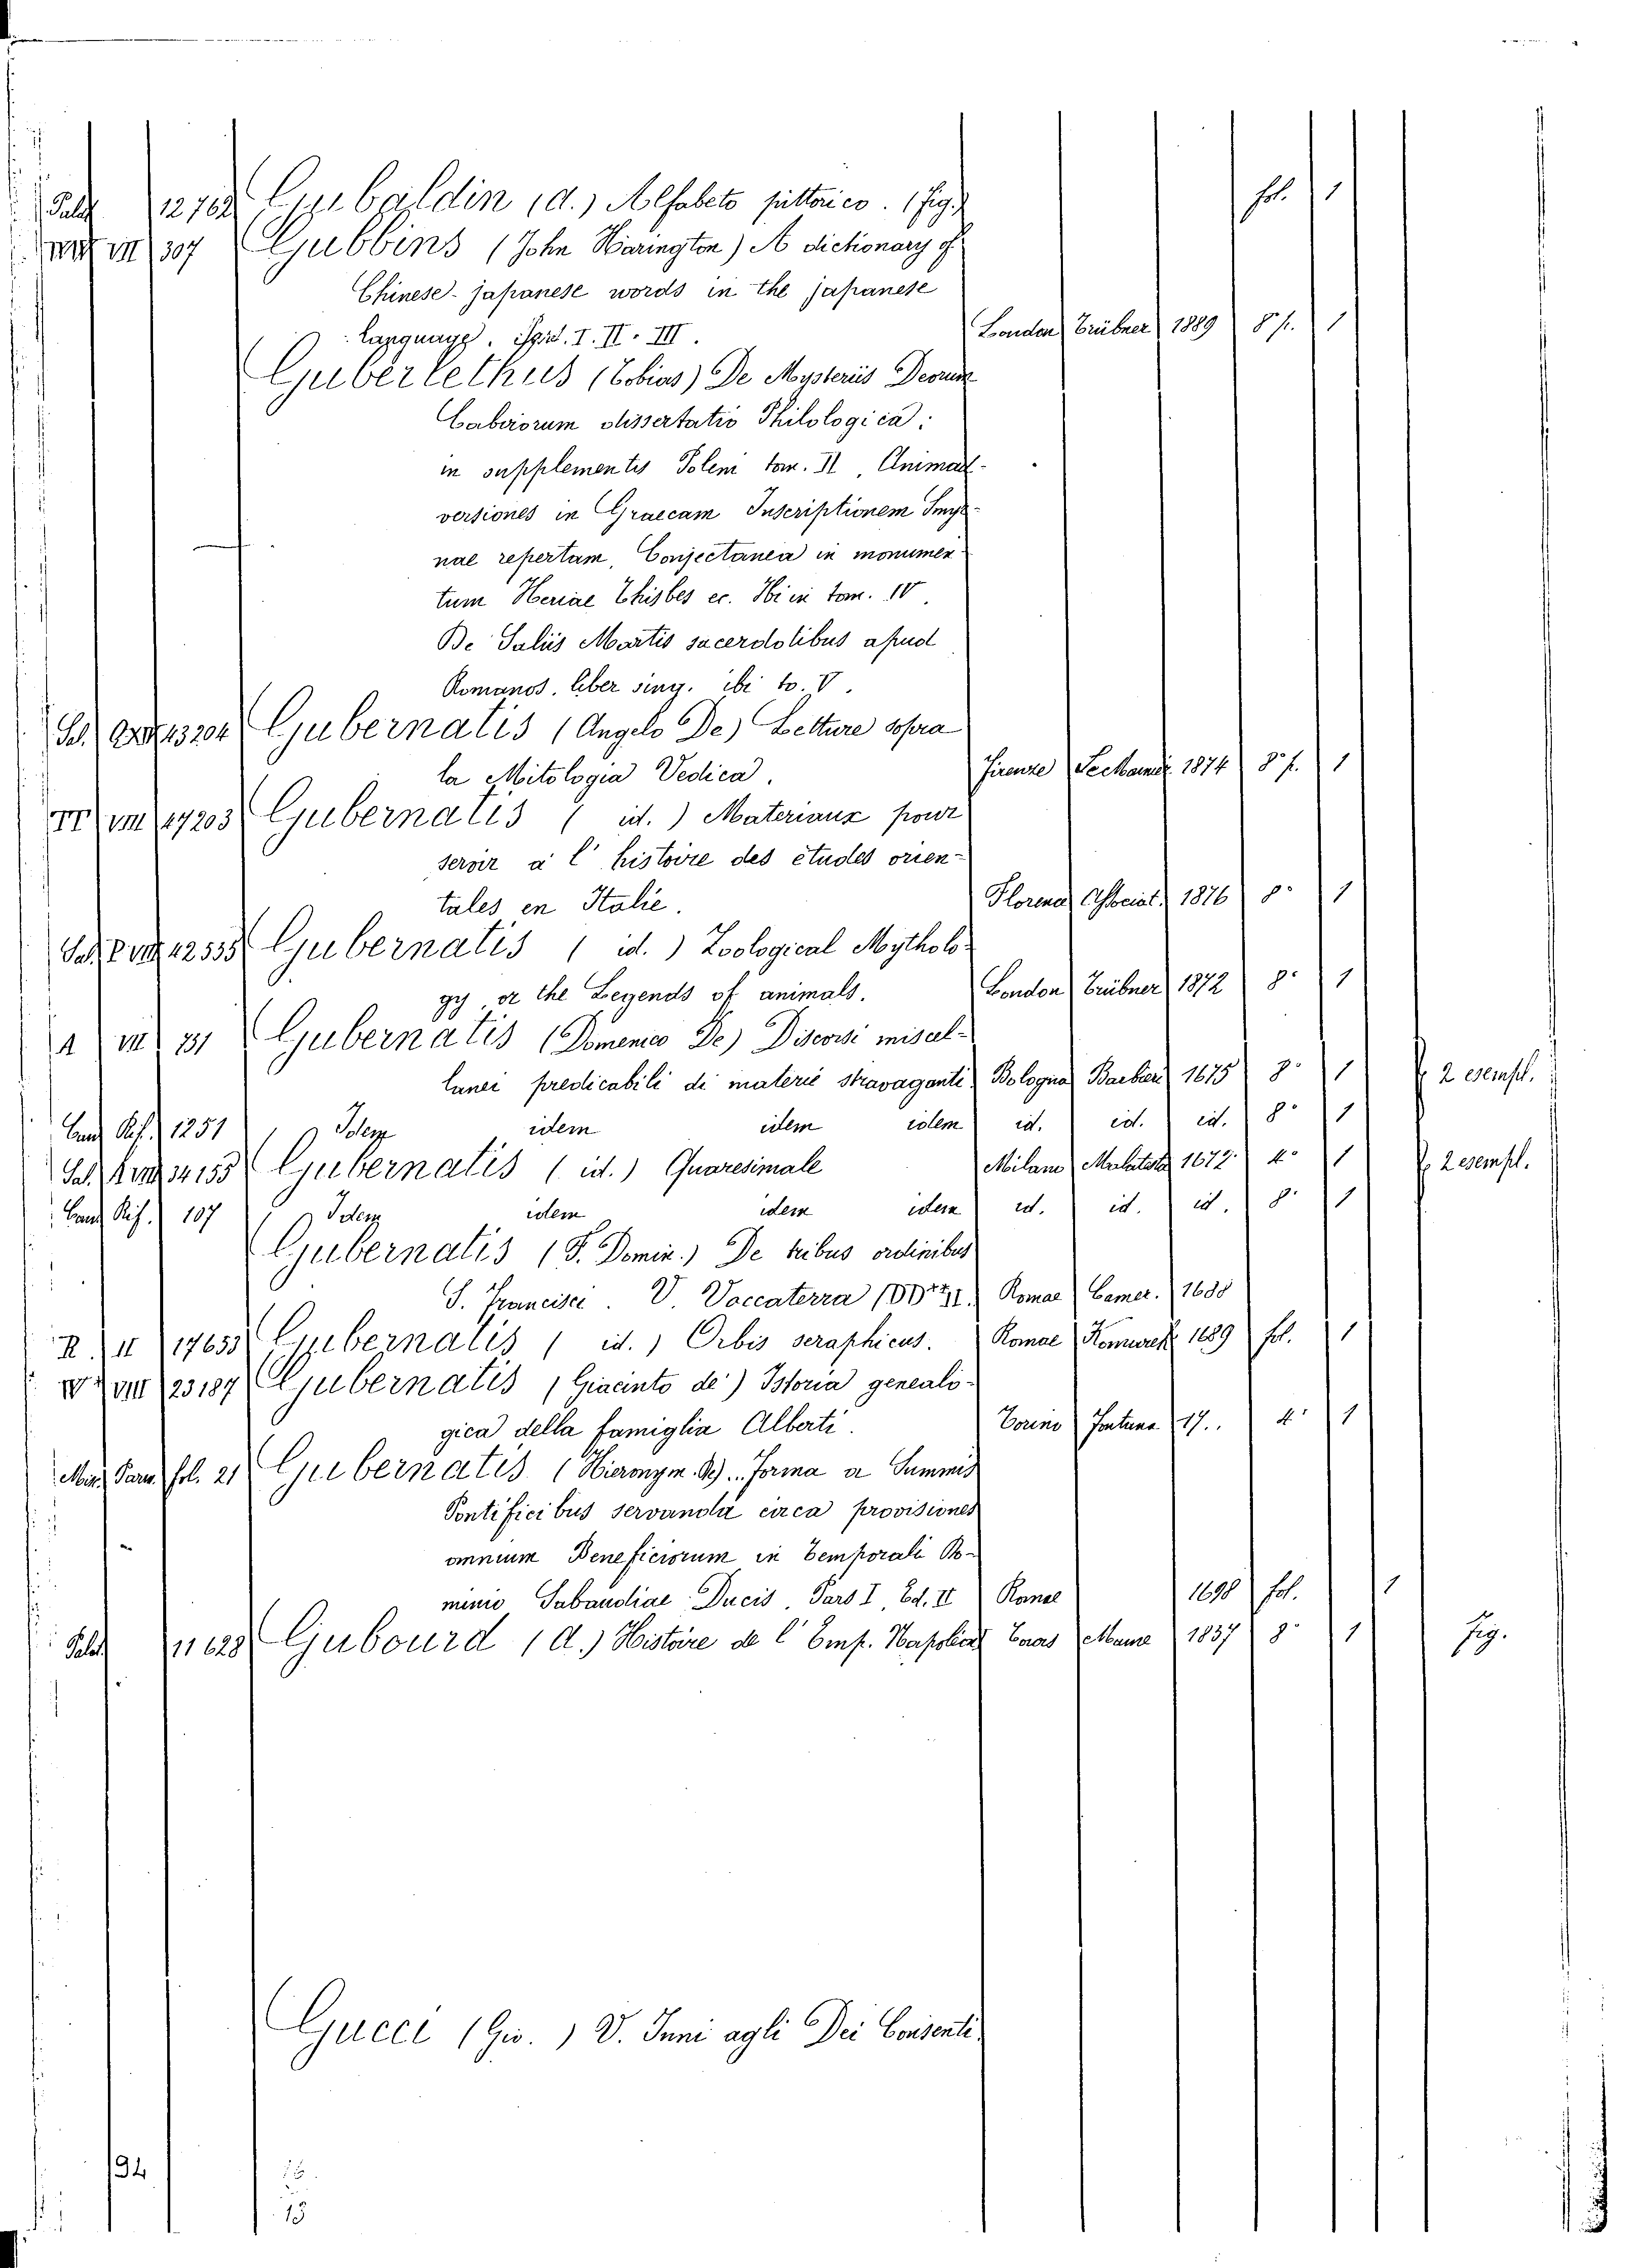 Palat 12762 Gubaldin (A.) Alfabeto pittorico. (Fig.) fol. 1
VIII 307 Gubbins (John Harington) A dictionary of
Chinese-japanese words in the japanese
language. I. II. III. London Trübner 1889 8° p. 1
Guberlethus (Tobias) De Mysteriis Deorum
Cabirorum dissertatio Philologica:
in supplementis Poleni tom. II, Animad-
versiones in Graecam Inscriptionem Smyr-
nae repertam, Conjectanea in monumen-
tum Heriae Thisbes ec. Ibi in tom. IV.
De Saliis Martis sacerdotibus apud
Romanos. liber sing. ibi to. V.
13204 Gubernatis (Angelo De) Letture sopra
la Mitologia Vedica. Firenze 1874 8° p. 1
TT VIII 17203 Gubernatis (id.) Materiaux pour
servir a l'histoire des études orien-
tales en Italie. Florence Associat. 1876 8° 1
12535 Gubernatis (id.) Zoological Mytholo-
gy, or the Legends of animals. London Trübner 1872 8° 1
A VII 731 Gubernatis (Domenico De) Discorsi miscel-
lanei predicabili di materie stravaganti Bologna Barbieri 1675 8° 1 2 esempl.
Banc. Rif. 1251 Idem idem idem idem id. id. id. 8° 1
34155 Gubernatis (id.) Quaresimale Milano Malatesta 1672 4° 1 2 esempl.
Banc. Rif. 107 Idem idem idem idem id. id. id. 8° 1
Gubernatis (F. Domin.) De tribus ordinibus
S. Francisci. V. Voccaterra Romae Camer. 1688
R. II 17653 Gubernatis (id.) Orbis seraphicus. Romae Komarek 1689 fol. 1
VIII 23187 Gubernatis (Giacinto de') Istoria genealo-
gica della famiglia Alberti. Torino Fontana 17.. 4° 1
fol. 21 Gubernatis (Hieronym. De). Forma a Summis
Pontificibus servanda circa provisiones
omnium Beneficiorum in Temporali Do-
minio Sabaudiae Ducis. Pars I, Ed. II Romae 1698 fol. 1
Palat 11628 Gubourd (A.) Histoire de l'Emp. Napoléon Tours Mame 1837 8° 1 Fig.
Gucci (Gio.) V. Inni agli Dei Consenti
194
15